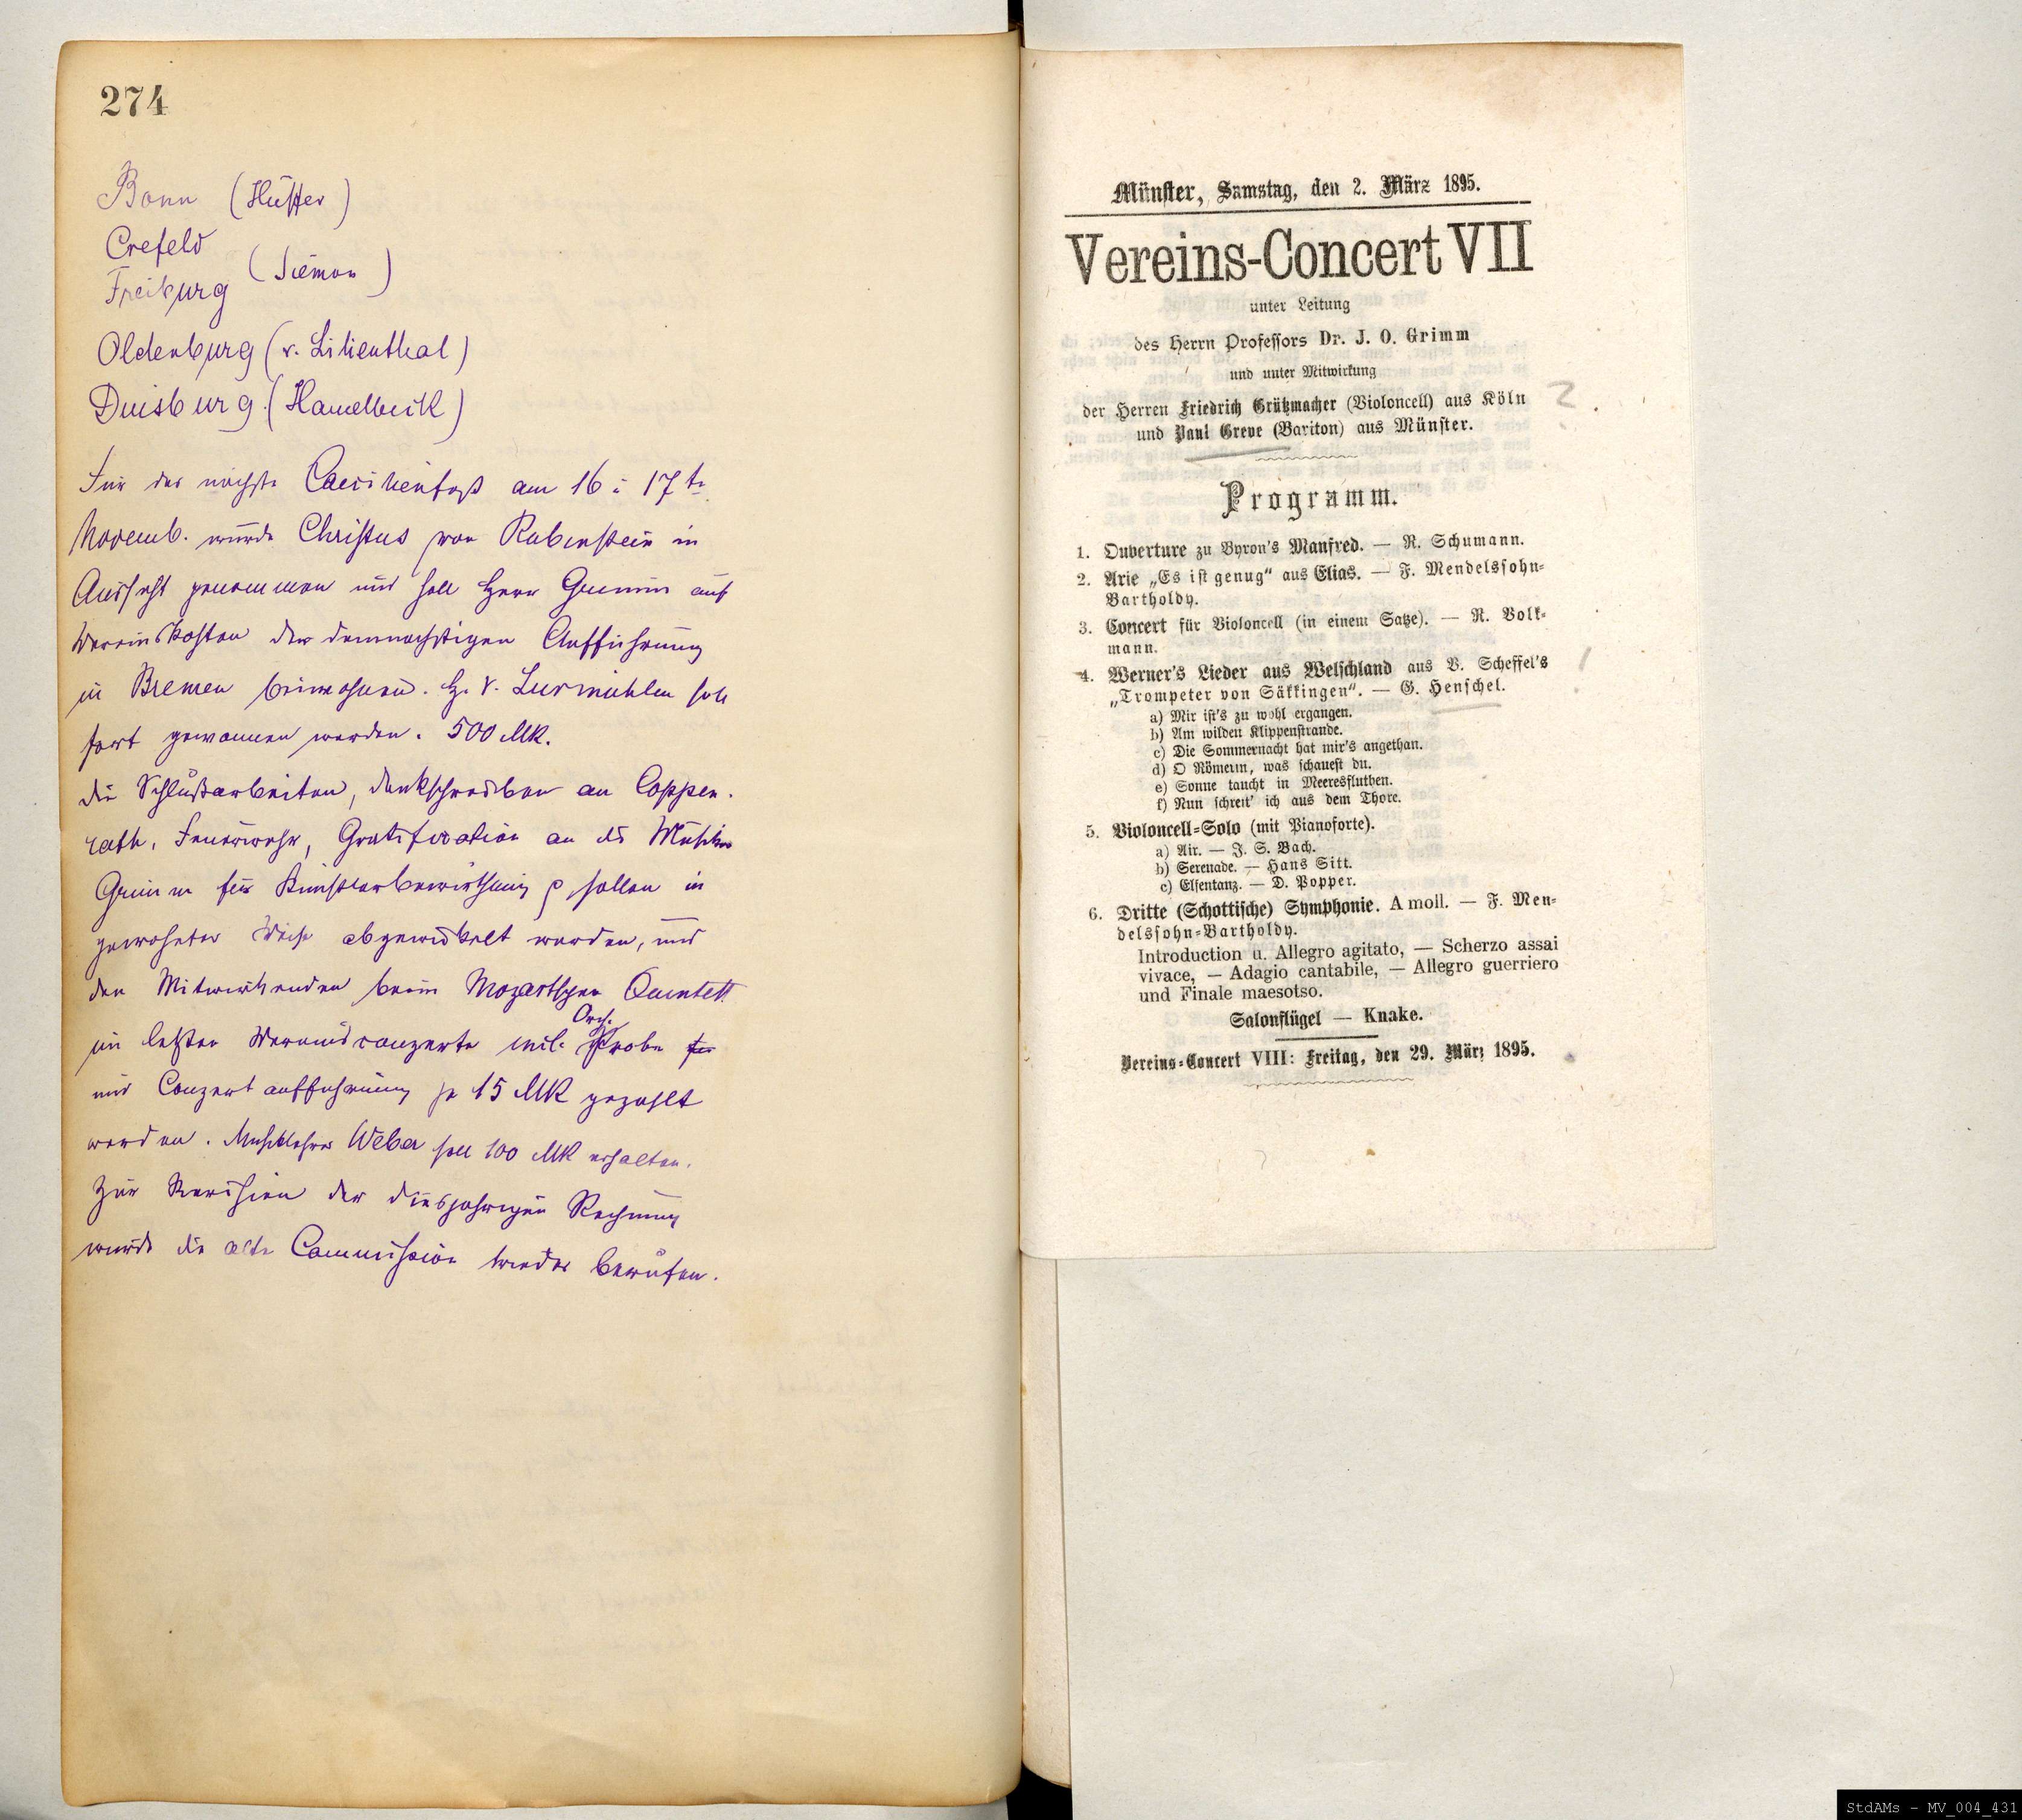 274
Bonn (Hüffer)
Crefeld
Freiburg (Siemon)
Oldenburg (v. Lilienthal)
Duisburg. (Hamelbeck)
Für das nächste Caecilienfest am 16 u 17te
Novemb. wurde Christus von Rubenstein in
Aussicht genommen und soll Herr Grimm auf
Vereinskosten der demnächstigen Aufführung
in Bremen beiwohnen. H. v. Zurmühlen soll
fort gewonnen werden. 500 MK.
die Schlußarbeiten, dankschreiben an Coppen.
rath, Feuerwehr, Gratification an die Musiker
Grimm für Künstlerbewirthung p sollen in
gewohnter Weise abgewickelt werden, und
den Mitwirkenden beim Mozartschen Quintett
im letzten Vereinsconzerte incl. Orch. Probe
und Conzertaufführung je 15 MK gezahlt
werden. Musiklehrer Weber soll 100 MK erhalten.
Zur Revision der diesjährigen Rechnung
wurde die alte Commission wieder berufen.
Münster, Samstag, den 2. März 1895.
Vereins-Concert VII
unter Leitung
des Herrn Professors Dr. J. O. Grimm
und unter Mitwirkung
der Herren Friedrich Grützmacher (Violoncell) aus Köln
und Paul Greve (Bariton) aus Münster.
2
Programm.
1. Ouverture zu Byron's Manfred. — R. Schumann.
2. Arie „Es ist genug“ aus Elias. — F. Mendelssohn-
Bartholdy.
3. Concert für Violoncell (in einem Satze). — R. Volk-
mann.
4. Werner's Lieder aus Welschland aus V. Scheffel's
„Trompeter von Säkkingen“. — G. Henschel.
a) Mir ist's zu wohl ergangen.
b) Am wilden Klippenstrande.
c) Die Sommernacht hat mir's angethan.
d) O Römerin, was schauest du.
e) Sonne taucht in Meeresfluthen.
f) Nun schreit' ich aus dem Thore.
5. Violoncell-Solo (mit Pianoforte).
a) Air. — J. S. Bach.
b) Serenade. — Hans Sitt.
c) Elfentanz. — D. Popper.
6. Dritte (Schottische) Symphonie. A moll. — F. Men-
delssohn-Bartholdy.
Introduction u. Allegro agitato, — Scherzo assai
vivace, — Adagio cantabile, — Allegro guerriero
und Finale maesotso.
Salonflügel — Knake.
Vereins-Concert VIII: Freitag, den 29. März 1895.
StdAMs - MV_004_431